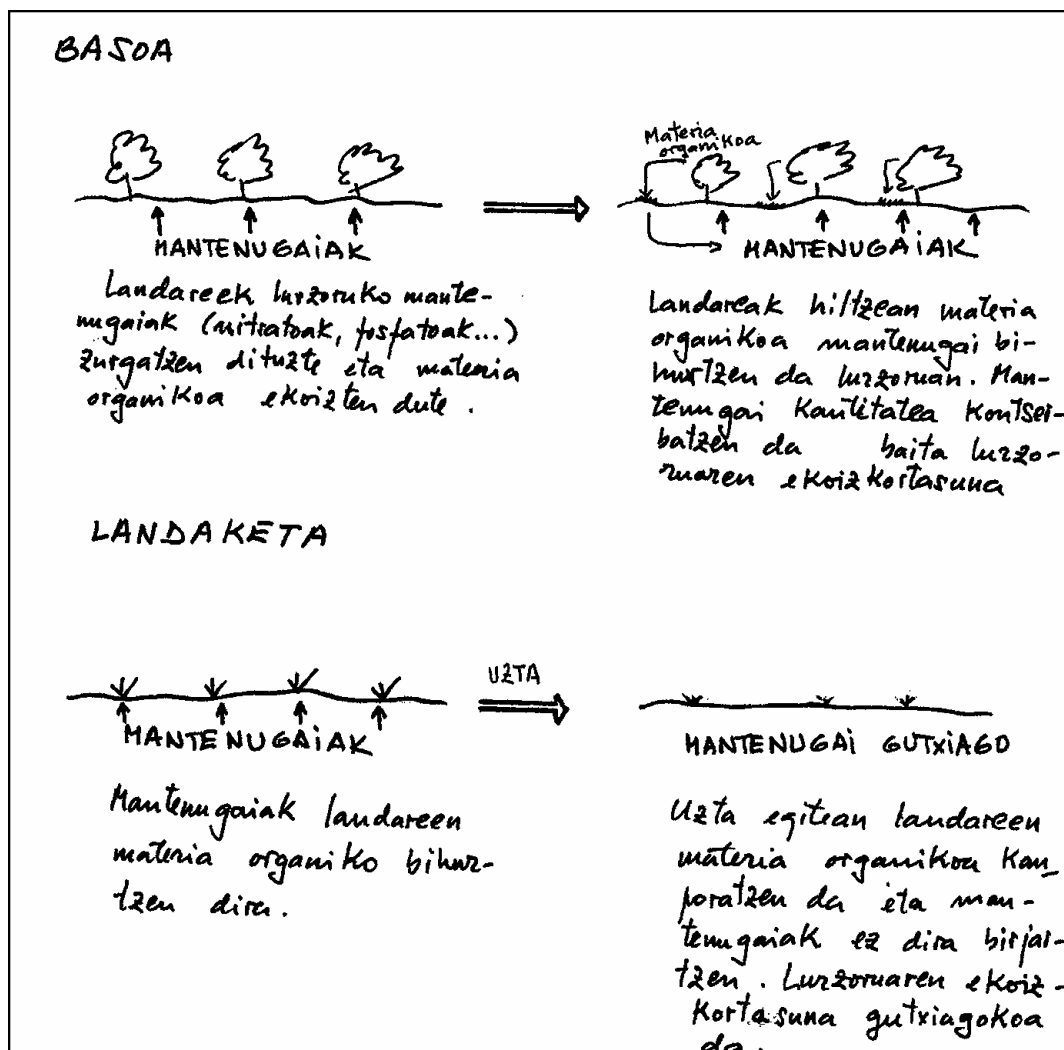 BASOA
Materia
organikoa
MANTENUGAIAK
MANTENUGAIAK
Landareek lurzoruko mante-
nugaiak (nitratoak, fosfatoak...)
zurgatzen dituzte eta materia
organikoa ekoizten dute.
Landareak hiltzean materia
organikoa mantenugai bi-
hurtzen da lurzoruan. Man-
tenugai kantitatea kontser-
batzen da baita lurzo-
ruaren ekoizkortasuna
LANDAKETA
UZTA
MANTENUGAIAK
MANTENUGAI GUTXIAGO
Mantenugaiak landareen
materia organiko bihur-
tzen dira.
Uzta egitean landareen
materia organikoa kan_
poratzen da eta man-
tenugaiak ez dira birjar-
tzen. Lurzoruaren ekoiz-
kortasuna gutxiagokoa
da.